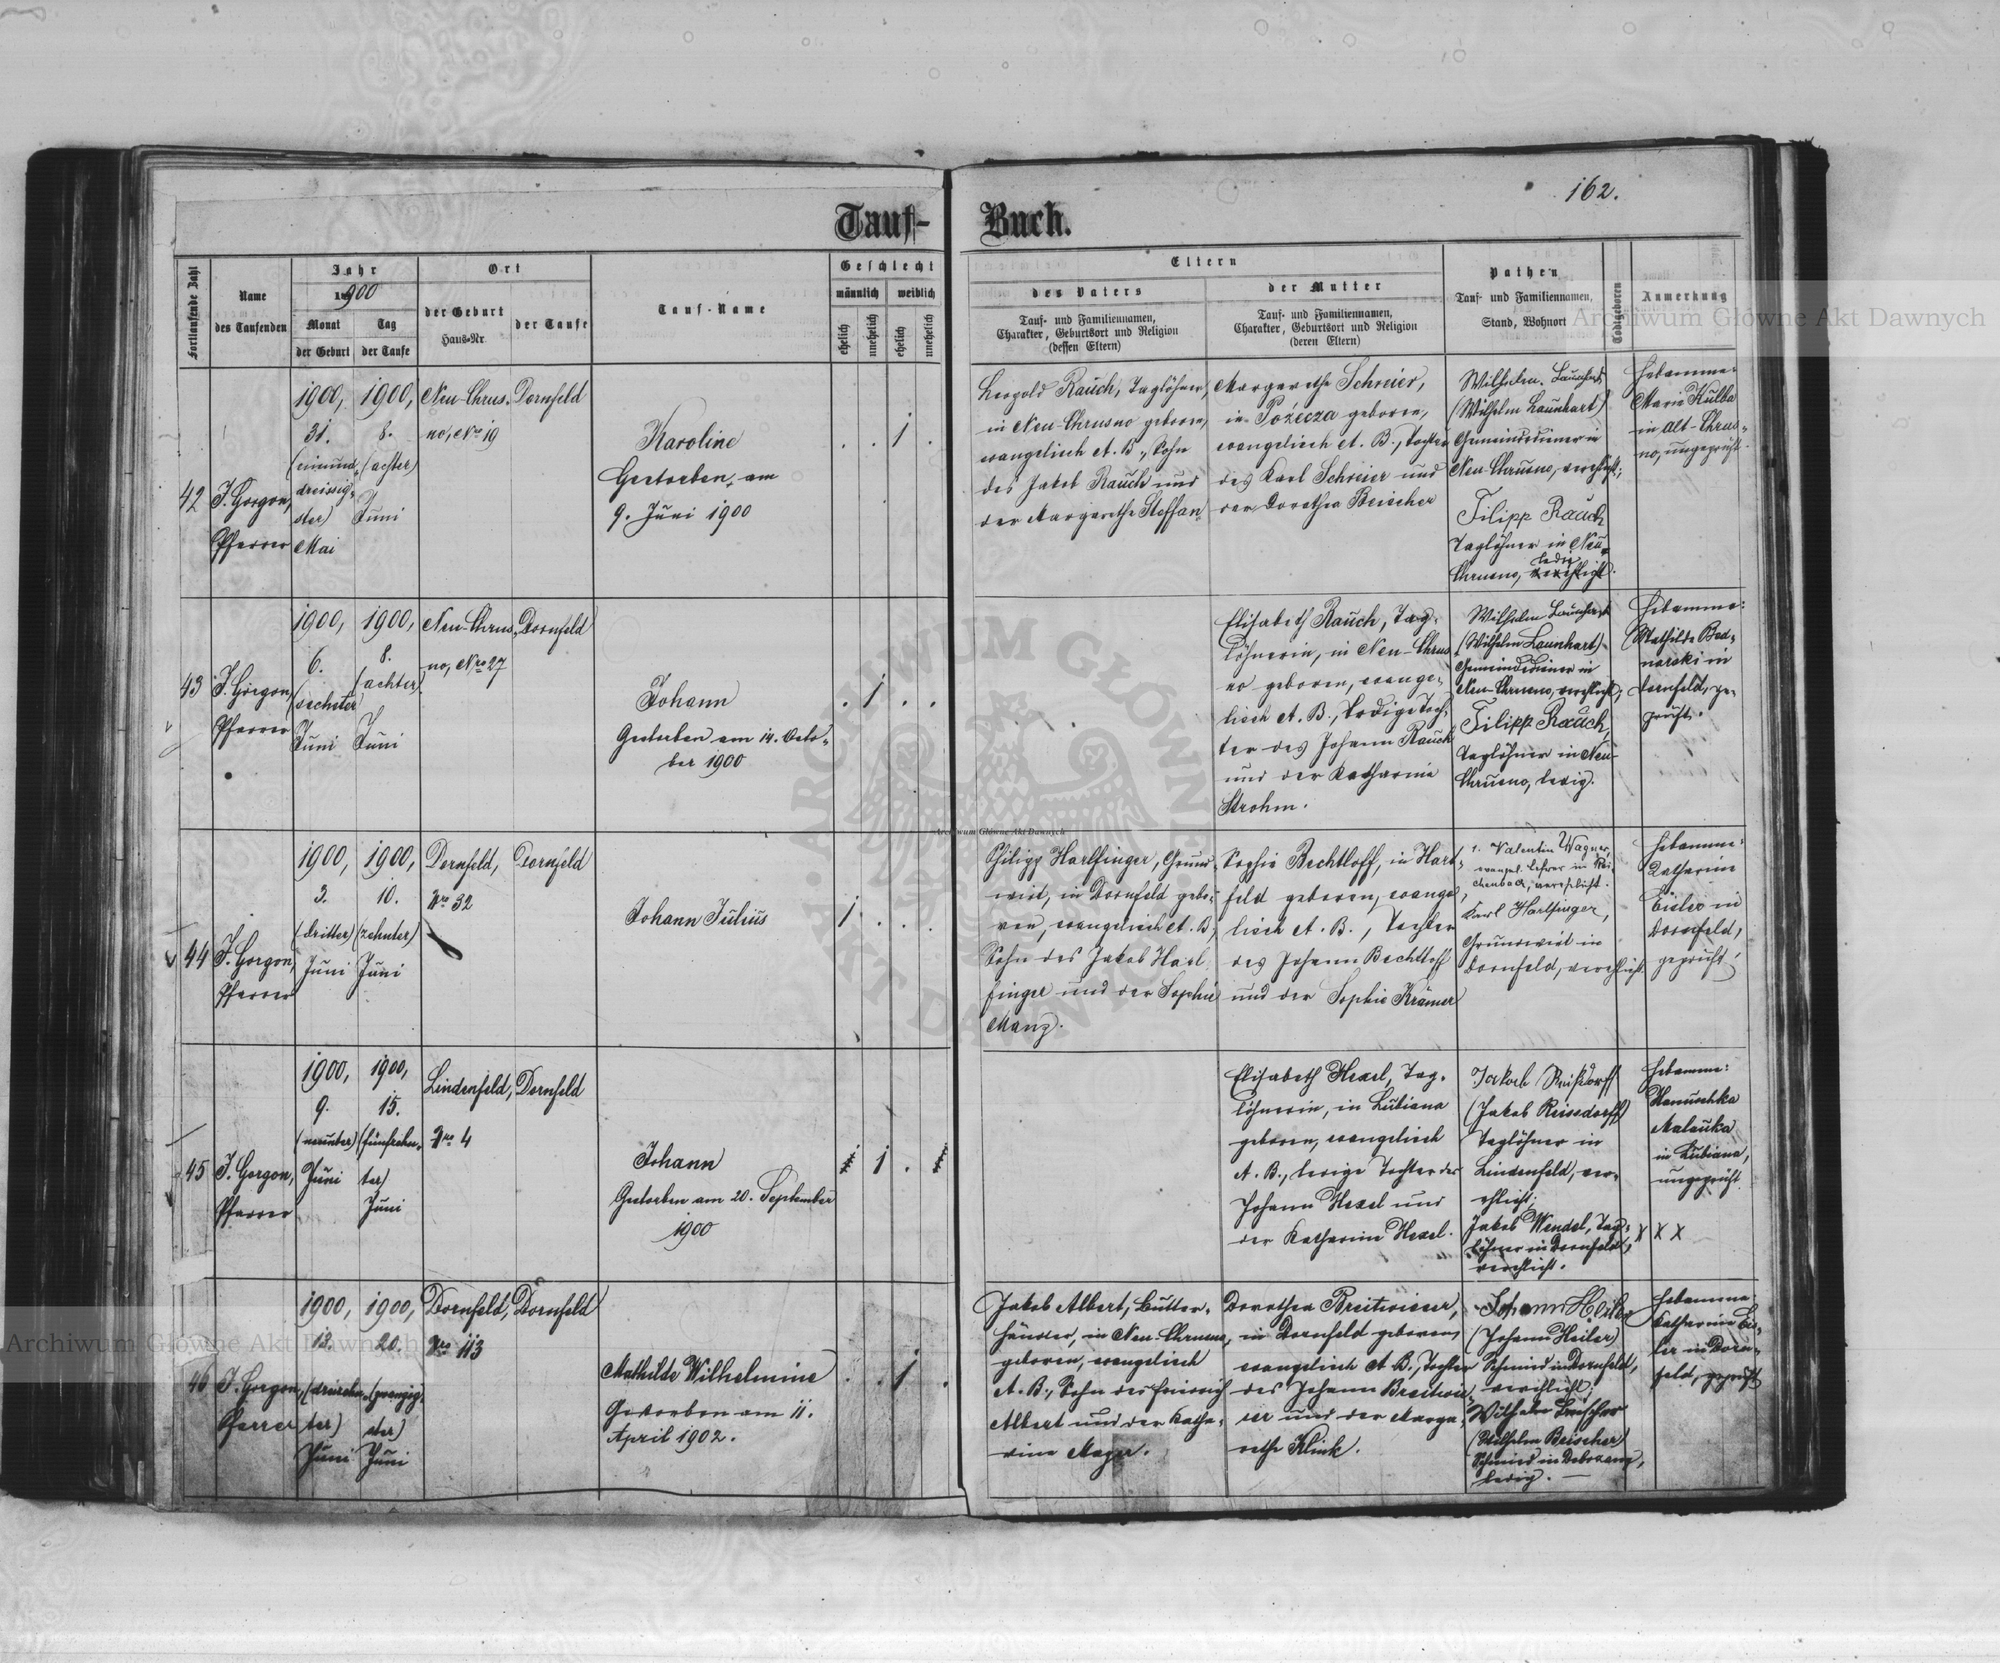 162.
Tauf-Buch.
Fortlaufende Zahl
Name
des Taufenden
Jahr
1900
Monat
der Geburt
Tag
der Taufe
Ort
der Geburt
Haus-Nr.
der Taufe
Tauf-Name
Geschlecht
männlich
weiblich
ehelich
unehelich
ehelich
unehelich
Eltern
des Vaters
Tauf- und Familiennamen,
Charakter, Geburtsort und Religion
(dessen Eltern)
der Mutter
Tauf- und Familiennamen,
Charakter, Geburtsort und Religion
(deren Eltern)
Pathen
Tauf- und Familiennamen,
Stand, Wohnort
Todtgeboren
Anmerkung
42
J. Gorgon,
Pfarrer
1900,
31.
(einund-
dreissig-
ster)
Mai
1900,
8.
(achter)
Juni
Neu-Chrus-
no, Nro 19
Dornfeld
Karoline
Gestorben am
9. Juni 1900
1
Leopold Rauch, Taglöhner,
in Neu-Chrusno geboren,
evangelisch A. B., Sohn
des Jakob Rauch und
der Margarethe Steffan
Margarethe Schreier,
in Pożecza geboren,
evangelisch A. B., Tochter
des Karl Schreier und
der Dorothea Beischer
Wilhelm Launhart
(Wilhelm Launhart)
Gemeindediener in
Neu-Chrusno, verehlicht;
Filipp Rauch
Taglöhner in Neu-
ledig
Chrusno, verehligt.
Hebamme:
Marie Kulba
in Alt-Chrus-
no, ungeprüft.
43
J. Gorgon,
Pfarrer
1900,
6.
(sechster)
Juni
1900,
8.
(achter)
Juni
Neu-Chrus-
no, Nro 27
Dornfeld
Johann
Gestorben am 14. Octo-
ber 1900
1
Elisabeth Rauch, Tag-
löhnerin, in Neu-Chrus-
no geboren, evange-
lisch A. B., ledige Toch-
ter des Johann Rauch
und der Katharina
Strohm.
Wilhelm Launhart
(Wilhelm Launhart)
Gemeindediener in
Neu-Chrusno, verehlicht;
Filipp Rauch,
Taglöhner in Neu-
Chrusno, ledig.
Hebamme:
Mathilde Bed-
narski in
Dornfeld, ge-
prüft.
44
J. Gorgon,
Pfarrer
1900,
3.
(dritter)
Juni
1900,
10.
(zehnter)
Juni
Dornfeld,
Nro 32
Dornfeld
Johann Julius
1
Philipp Harlfinger, Grund-
wirt, in Dornfeld gebo-
ren, evangelisch A. B.,
Sohn des Jakob Harl-
finger und der Sophie
Manz.
Sophie Bechtloff, in Hart-
feld geboren, evange-
lisch A. B., Tochter
des Johann Bechtloff
und der Sophie Krämer
Valentin Wagner,
evangel. Lehrer in Rei-
chenbach, verehlicht.
Karl Harlfinger,
Grundwirt in
Dornfeld, verehlicht.
Hebamme:
Katharine
Eisler in
Dornfeld,
geprüft.
45
J. Gorgon,
Pfarrer
1900,
9.
(neunter)
Juni
1900,
15.
(fünfzehn-
ter)
Juni
Lindenfeld,
Nro 4
Dornfeld
Johann
Gestorben am 20. September
1900
1
Elisabeth Hexel, Tag-
löhnerin, in Lubiana
geboren, evangelisch
A. B., ledige Tochter des
Johann Hexel und
der Katharina Hexel.
Jakob Reißdorff
(Jakob Reissdorff)
Taglöhner in
Lindenfeld, ver-
ehlicht;
Jakob Wendel, Tag-
löhner in Dornfeld,
verehlicht.
Hebamme:
Hanuschka
Malauka
in Lubiana,
ungeprüft.
X X X
46
J. Gorgon,
Pfarrer
1900,
13.
(dreizehn-
ter)
Juni
1900,
20.
(zwanzig-
ster)
Juni
Dornfeld,
Nro 113
Dornfeld
Mathilde Wilhelmine
Gestorben am 11.
April 1902.
1
Jakob Albert, Butter-
händler, in Neu-Chrusno,
geboren, evangelisch
A. B., Sohn des Heinrich
Albert und der Katha-
rina Mayer.
Dorothea Breitwieser,
in Dornfeld geboren,
evangelisch A. B., Tochter
des Johann Breitwie-
ser und der Marga-
rethe Klink.
Johann Heiler
(Johann Heiler)
Schmied in Dornfeld,
verehlicht;
Wilhelm Beischer
(Wilhelm Beischer)
Schmied in
ledig.
Hebamme:
Katharine Eis-
ler in Dorn-
feld, geprüft
Archiwum Główne Akt Dawnych
Archiwum Główne Akt Dawnych
Archiwum Główne Akt Dawnych
ARCHIWUM GŁÓWNE AKT DAWNYCH